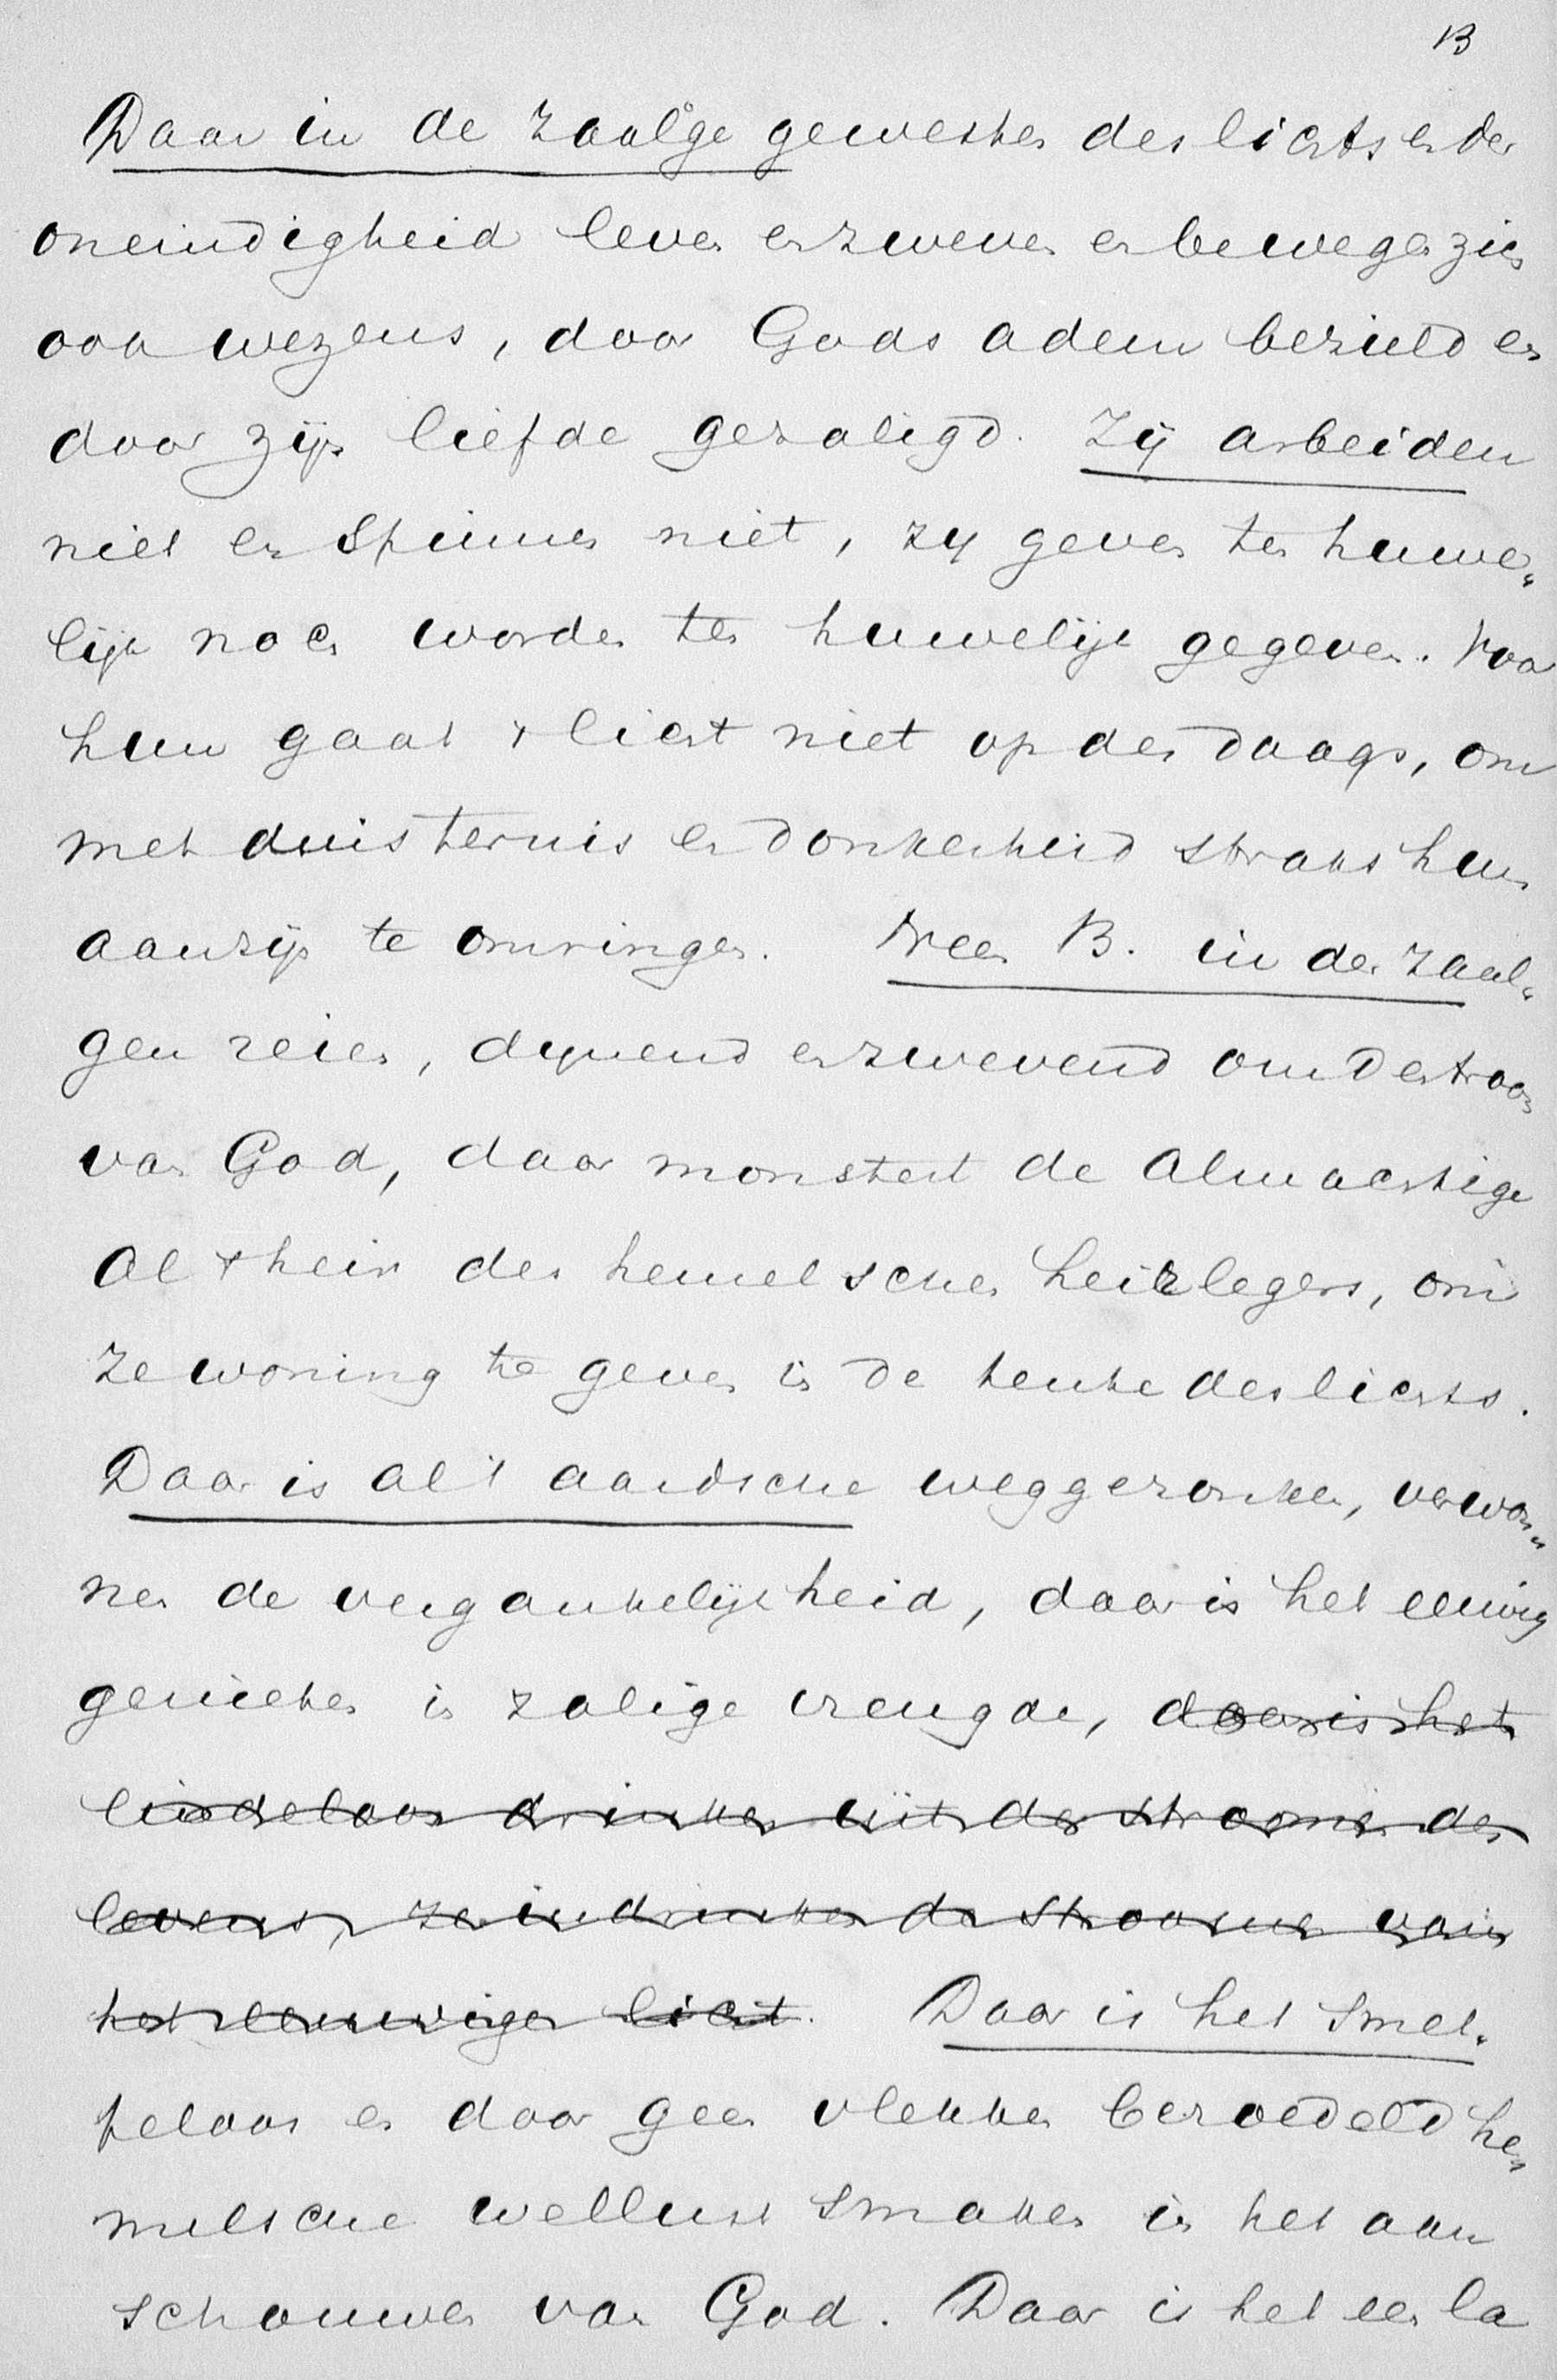 B
Daar in de zaal'ge gewesten des lichts en der
oneindigheid leven en zweven en bewegen zich
ook wezens, door Gods adem bezield en
door zijn liefde gezaligd. Zij arbeiden
niet en spinnen niet, zy geven ten huwe„
lijk noch worden ten huwelijk gegeven. Voor
hun gaat 't licht niet op des daags, om
met duisternis en donkerheid straks hun
aanzijn te omringen. Neen B. in de zaal„
gen reien, deynend en zwevend om den troon
van God, daar monstert de Almachtige
al 't heir der hemelsche heirlegers, om
ze woning te geven in de tente des lichts.
Daar is al 't aardsche weggezonken, verwon„
nen de vergankelijkheid, daar is het eeuwig
genieten in zalige vreugde, daar is het
eindeloos drinken uit de stroomen des
levens, ze indrinken de stroomen van
het eeuwige licht. Daar is het smet„
teloos en door geen vlekken bezoedeld he„
melsche wellust smaken in het aan
schouwen van God. Daar is het een la